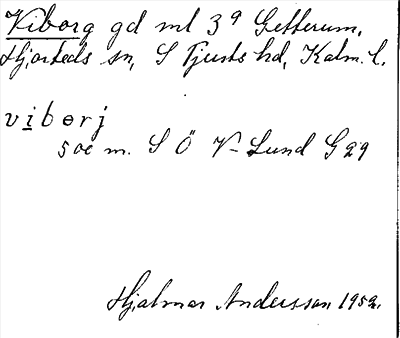 Viborg gd ml 3 a Getterum,
Hjorteds sn, S Tjusts hd, Kalm. l.
viborj
500 m. S Ö V- Lund G 29
Hjalmar Andersson 1952.